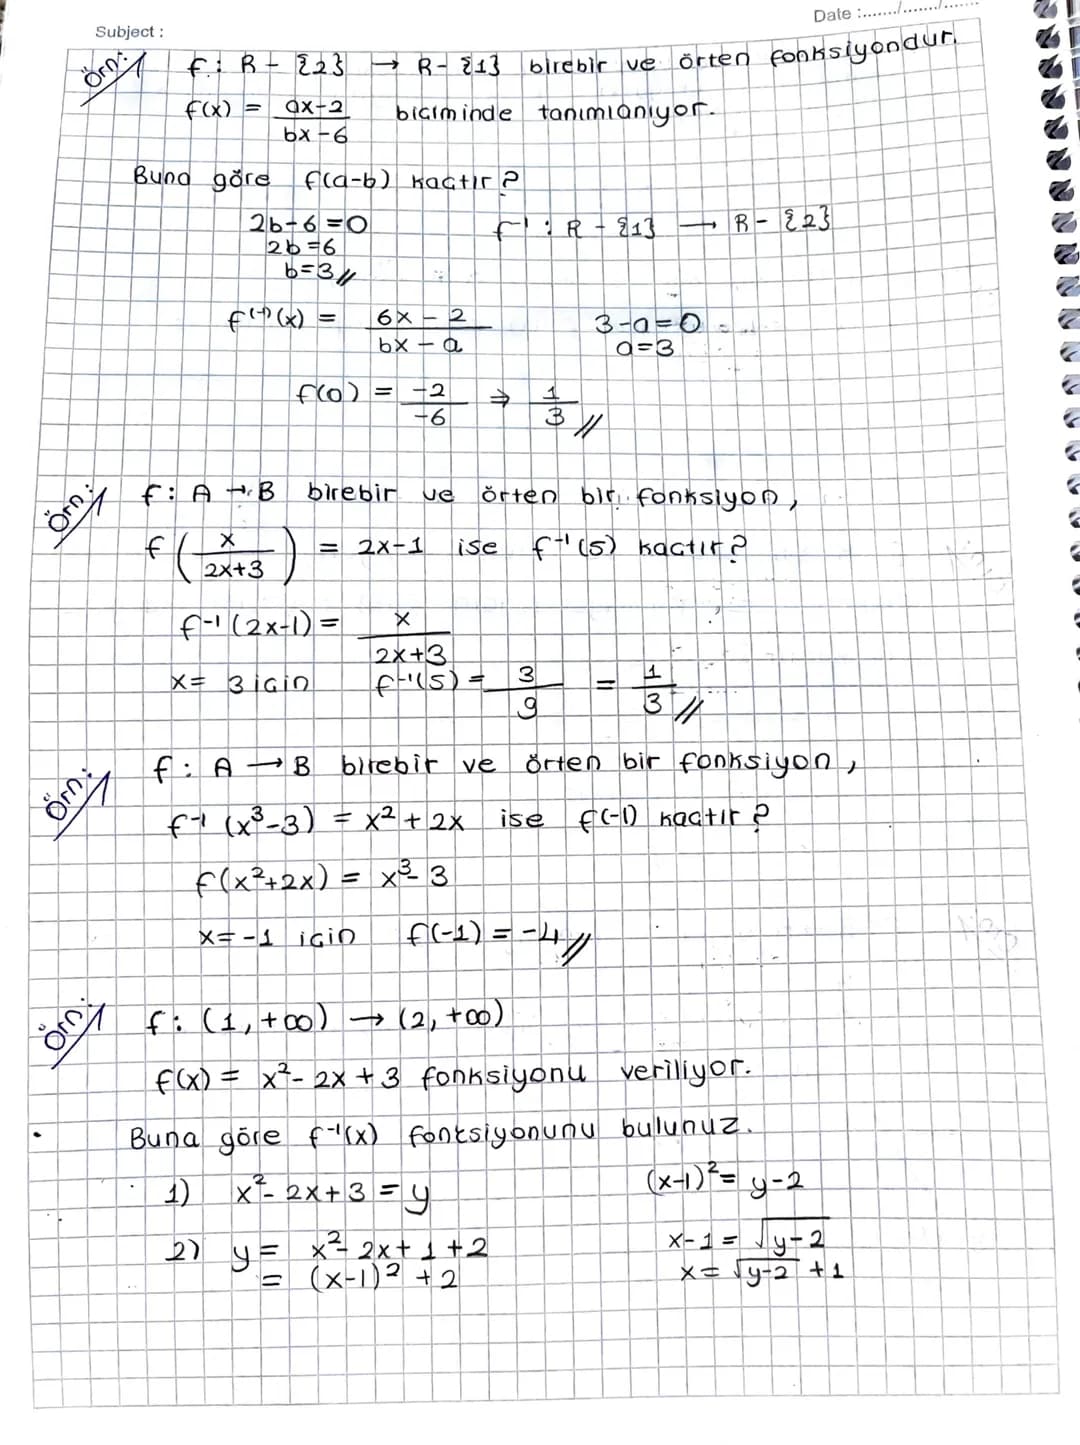 Date :......./......./.......
Subject :
Örn: f: R - {2} → R - {1} birebir ve örten fonksiyondur.
f(x) = ax-2 / bx-6 biçiminde tanımlanıyor.
Buna göre f(a-b) kaçtır?
2b-6=0 f⁻¹ : R - {1} → R - {2}
2b=6
b=3 //
f⁽⁻¹⁾(x) = 6x - 2 / bx - a 3-a=0
a=3
f(0) = -2 / -6 ⇒ 1/3 //
Örn: f: A → B birebir ve örten bir fonksiyon,
f(x / 2x+3) = 2x-1 ise f⁻¹(5) kaçtır?
f⁻¹(2x-1) = x / 2x+3
x= 3 için f⁻¹(5) = 3/9 = 1/3 //
Örn: f: A → B birebir ve örten bir fonksiyon,
f⁻¹ (x³-3) = x² + 2x ise f(-1) kaçtır?
f(x²+2x) = x³- 3
x= -1 için f(-1) = -4 //
Örn: f: (1, +∞) → (2, +∞)
f(x) = x²- 2x + 3 fonksiyonu veriliyor.
Buna göre f⁻¹(x) fonksiyonunu bulunuz.
1) x²- 2x + 3 = y (x-1)² = y-2
2) y = x²- 2x + 1 + 2 x-1 = √y-2
= (x-1)² + 2 x= √y-2 + 1